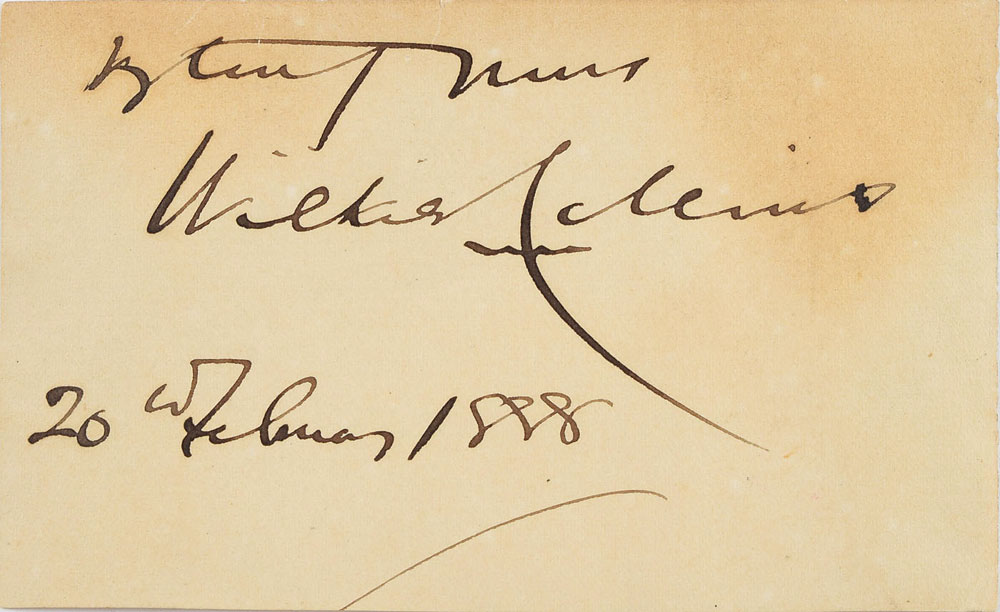 truly Yours
Wilkie Collins
20th February 1888